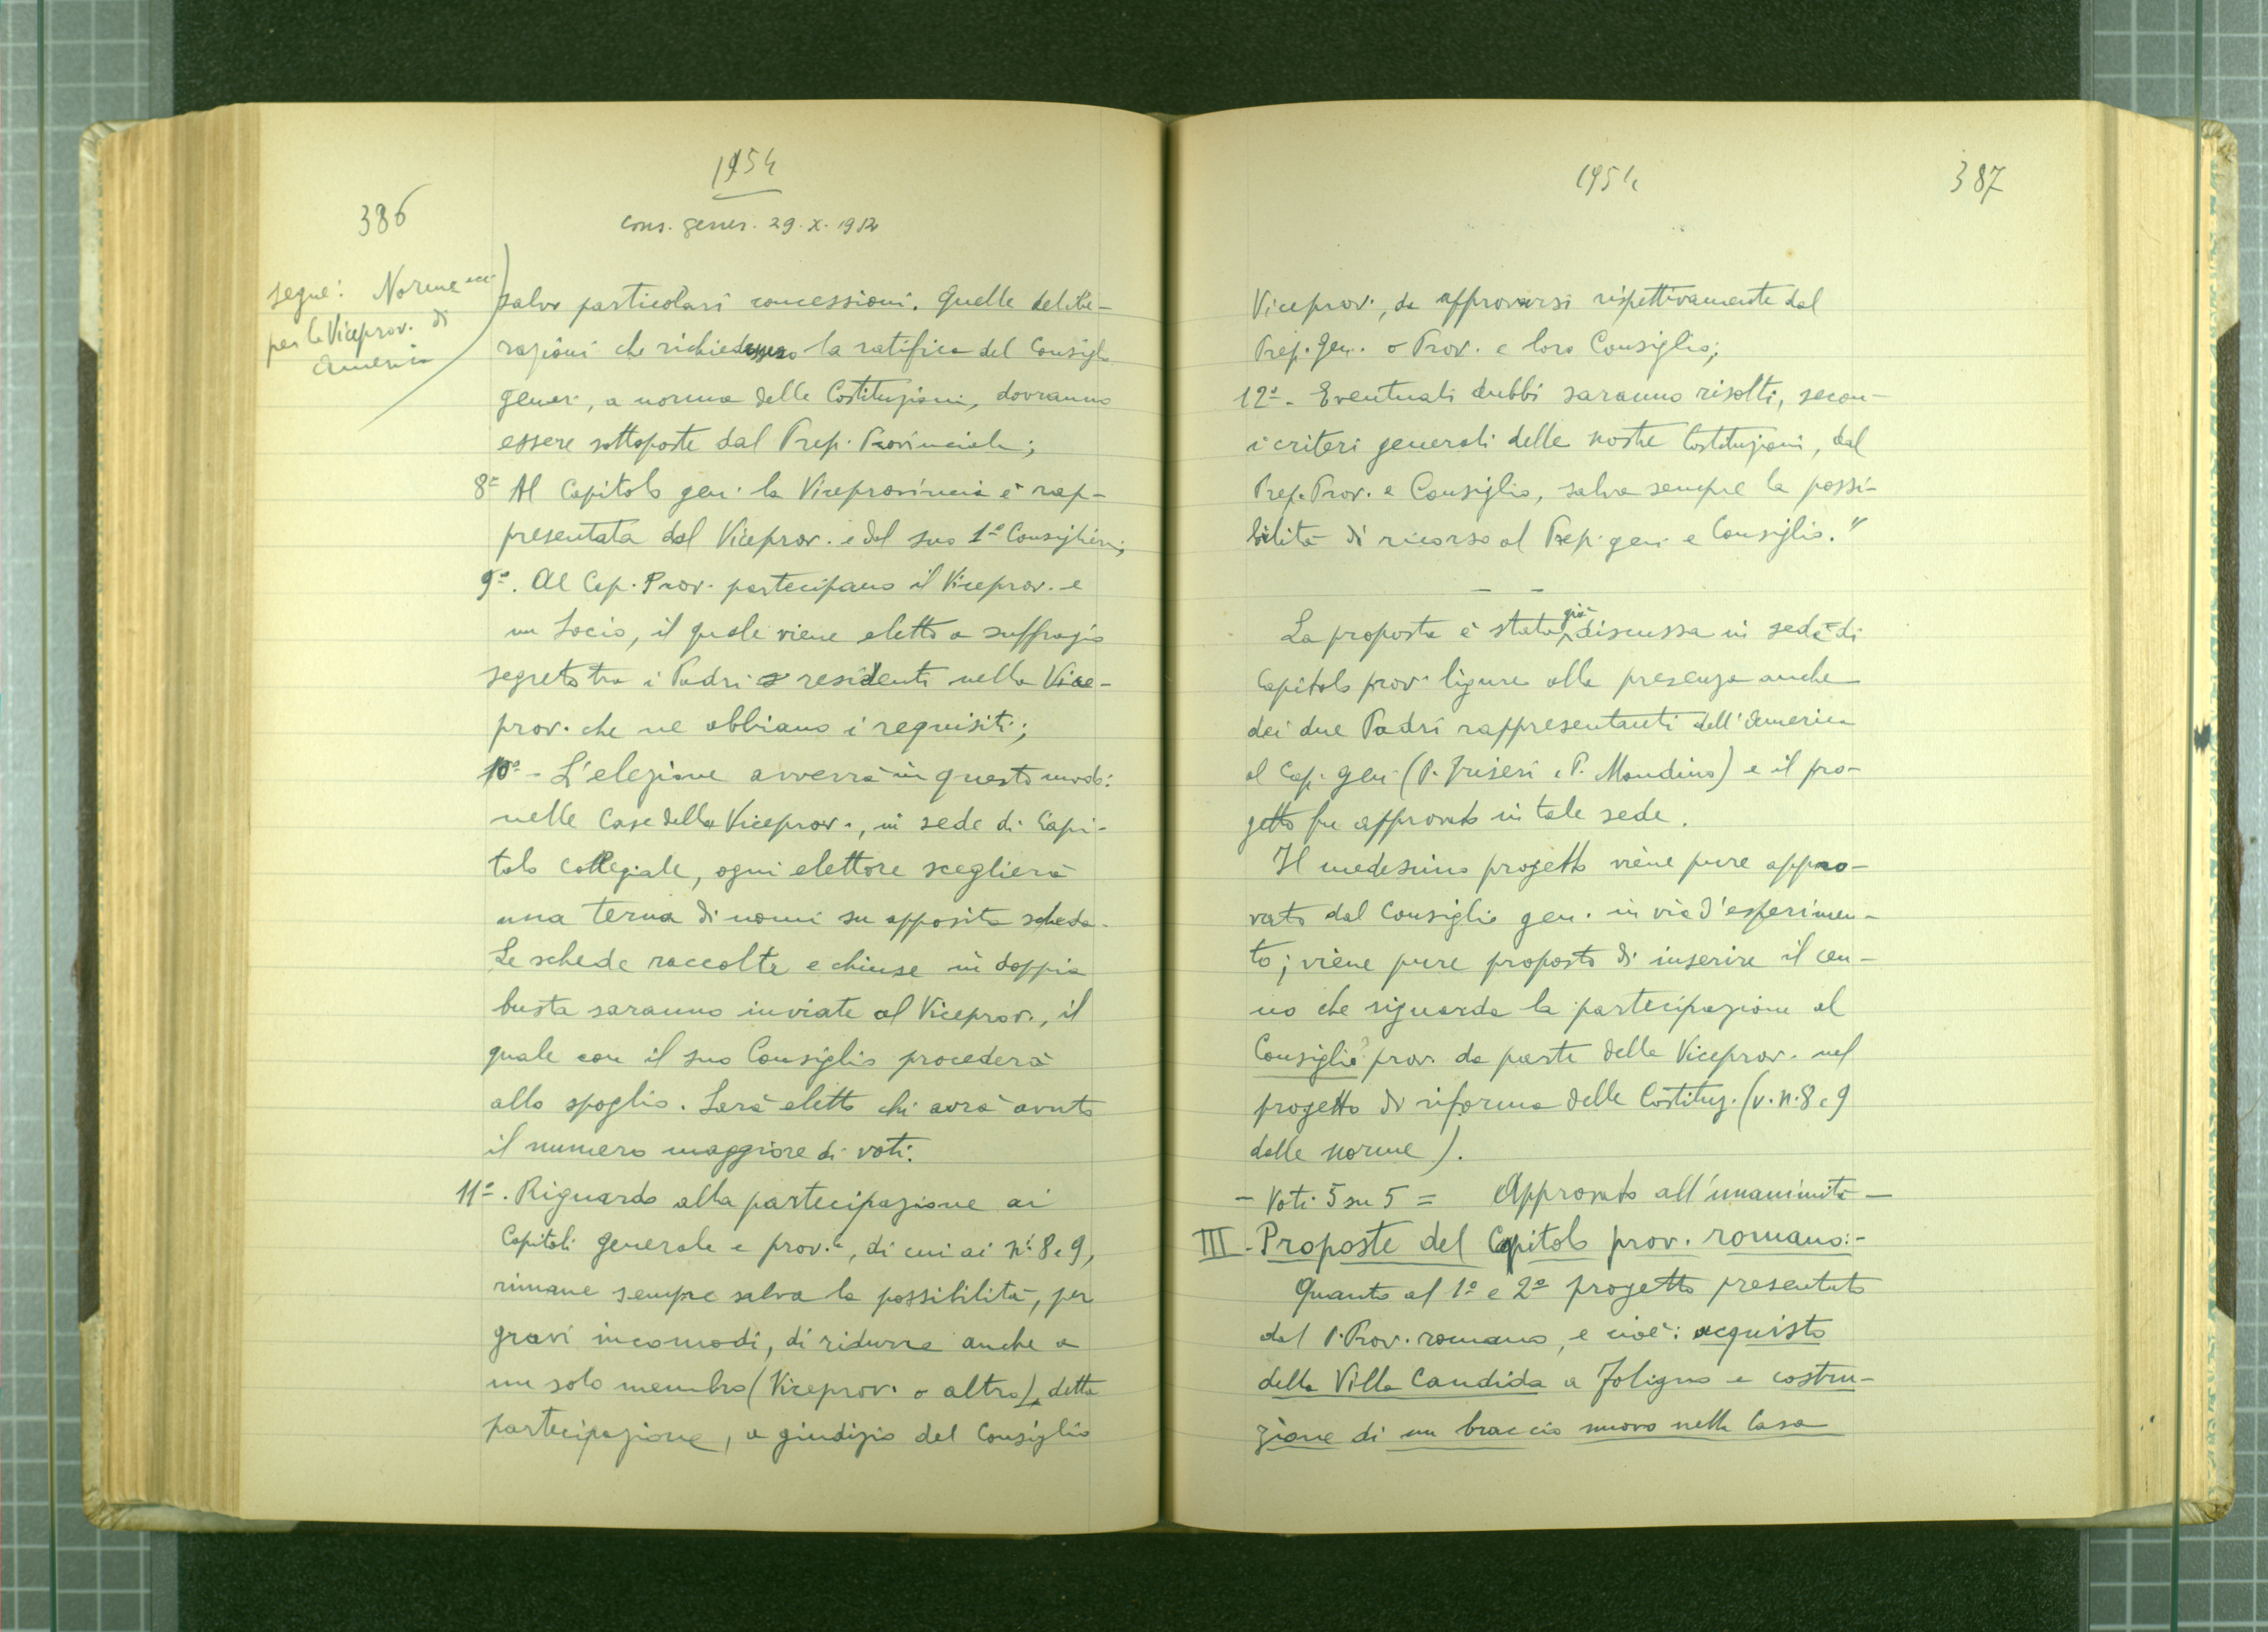 386
1954
Cons. gener. 29.X.1912
segue: Norme ecc.
per la Viceprov. di
America
salvo particolari concessioni. Quelle delibe-
razioni che richiedessero la ratifica del Consiglio
gener., a norma delle Costituzioni, dovranno
essere sottoposte dal Prep. Provinciale;
8º Al Capitolo gen. la Viceprovincia è rap-
presentata dal Viceprov. e dal suo 1º Consigliere;
9º. Al Cap. Prov. partecipano il Viceprov. e
un Socio, il quale viene eletto a suffragio
segreto tra i Padri residenti nella Vice-
prov. che ne abbiano i requisiti;
10º - L'elezione avverrà in questo modo:
nelle Case della Viceprov., in sede di Capi-
tolo collegiale, ogni elettore sceglierà
una terna di nomi su apposita scheda.
Le schede raccolte e chiuse in doppia
busta saranno inviate al Viceprov., il
quale con il suo Consiglio procederà
allo spoglio. Sarà eletto chi avrà avuto
il numero maggiore di voti.
11º. Riguardo alla partecipazione ai
Capitoli generale e prov.le, di cui ai ni. 8 e 9,
rimane sempre salva la possibilità, per
gravi incomodi, di ridurre anche a
un solo membro (Viceprov. o altro), detta
partecipazione, a giudizio del Consiglio
1954
387
Viceprov., da approvarsi rispettivamente dal
Prep. Gen. o Prov. e loro Consiglio;
12º - Eventuali dubbi saranno risolti, secon-
i criteri generali delle nostre Costituzioni, dal
Prep. Prov. e Consiglio, salva sempre la possi-
bilità di ricorso al Prep. gen. e Consiglio."
La proposta è stata già discussa in sede di
Capitolo prov. ligure alla presenza anche
dei due Padri rappresentanti dell'America
al Cap. gen. (P. Friseri e P. Mondino) e il pro-
getto fu approvato in tale sede.
Il medesimo progetto viene pure appro-
vato dal Consiglio gen. in via d'esperimen-
to; viene pure proposto di inserire il cen-
no che riguarda la partecipazione al
Consiglio prov. da parte della Viceprov. nel
progetto di riforma delle Costituz. (v. n. 8 e 9
delle norme).
- Voti 5 su 5 = Approvato all'unanimità -
III - Proposte del Capitolo prov. romano:-
Quanto al 1º e 2º progetto presentato
dal P. Prov. romano, e cioè: acquisto
della Villa Candida a Foligno e costru-
zione di un braccio nuovo nella Casa